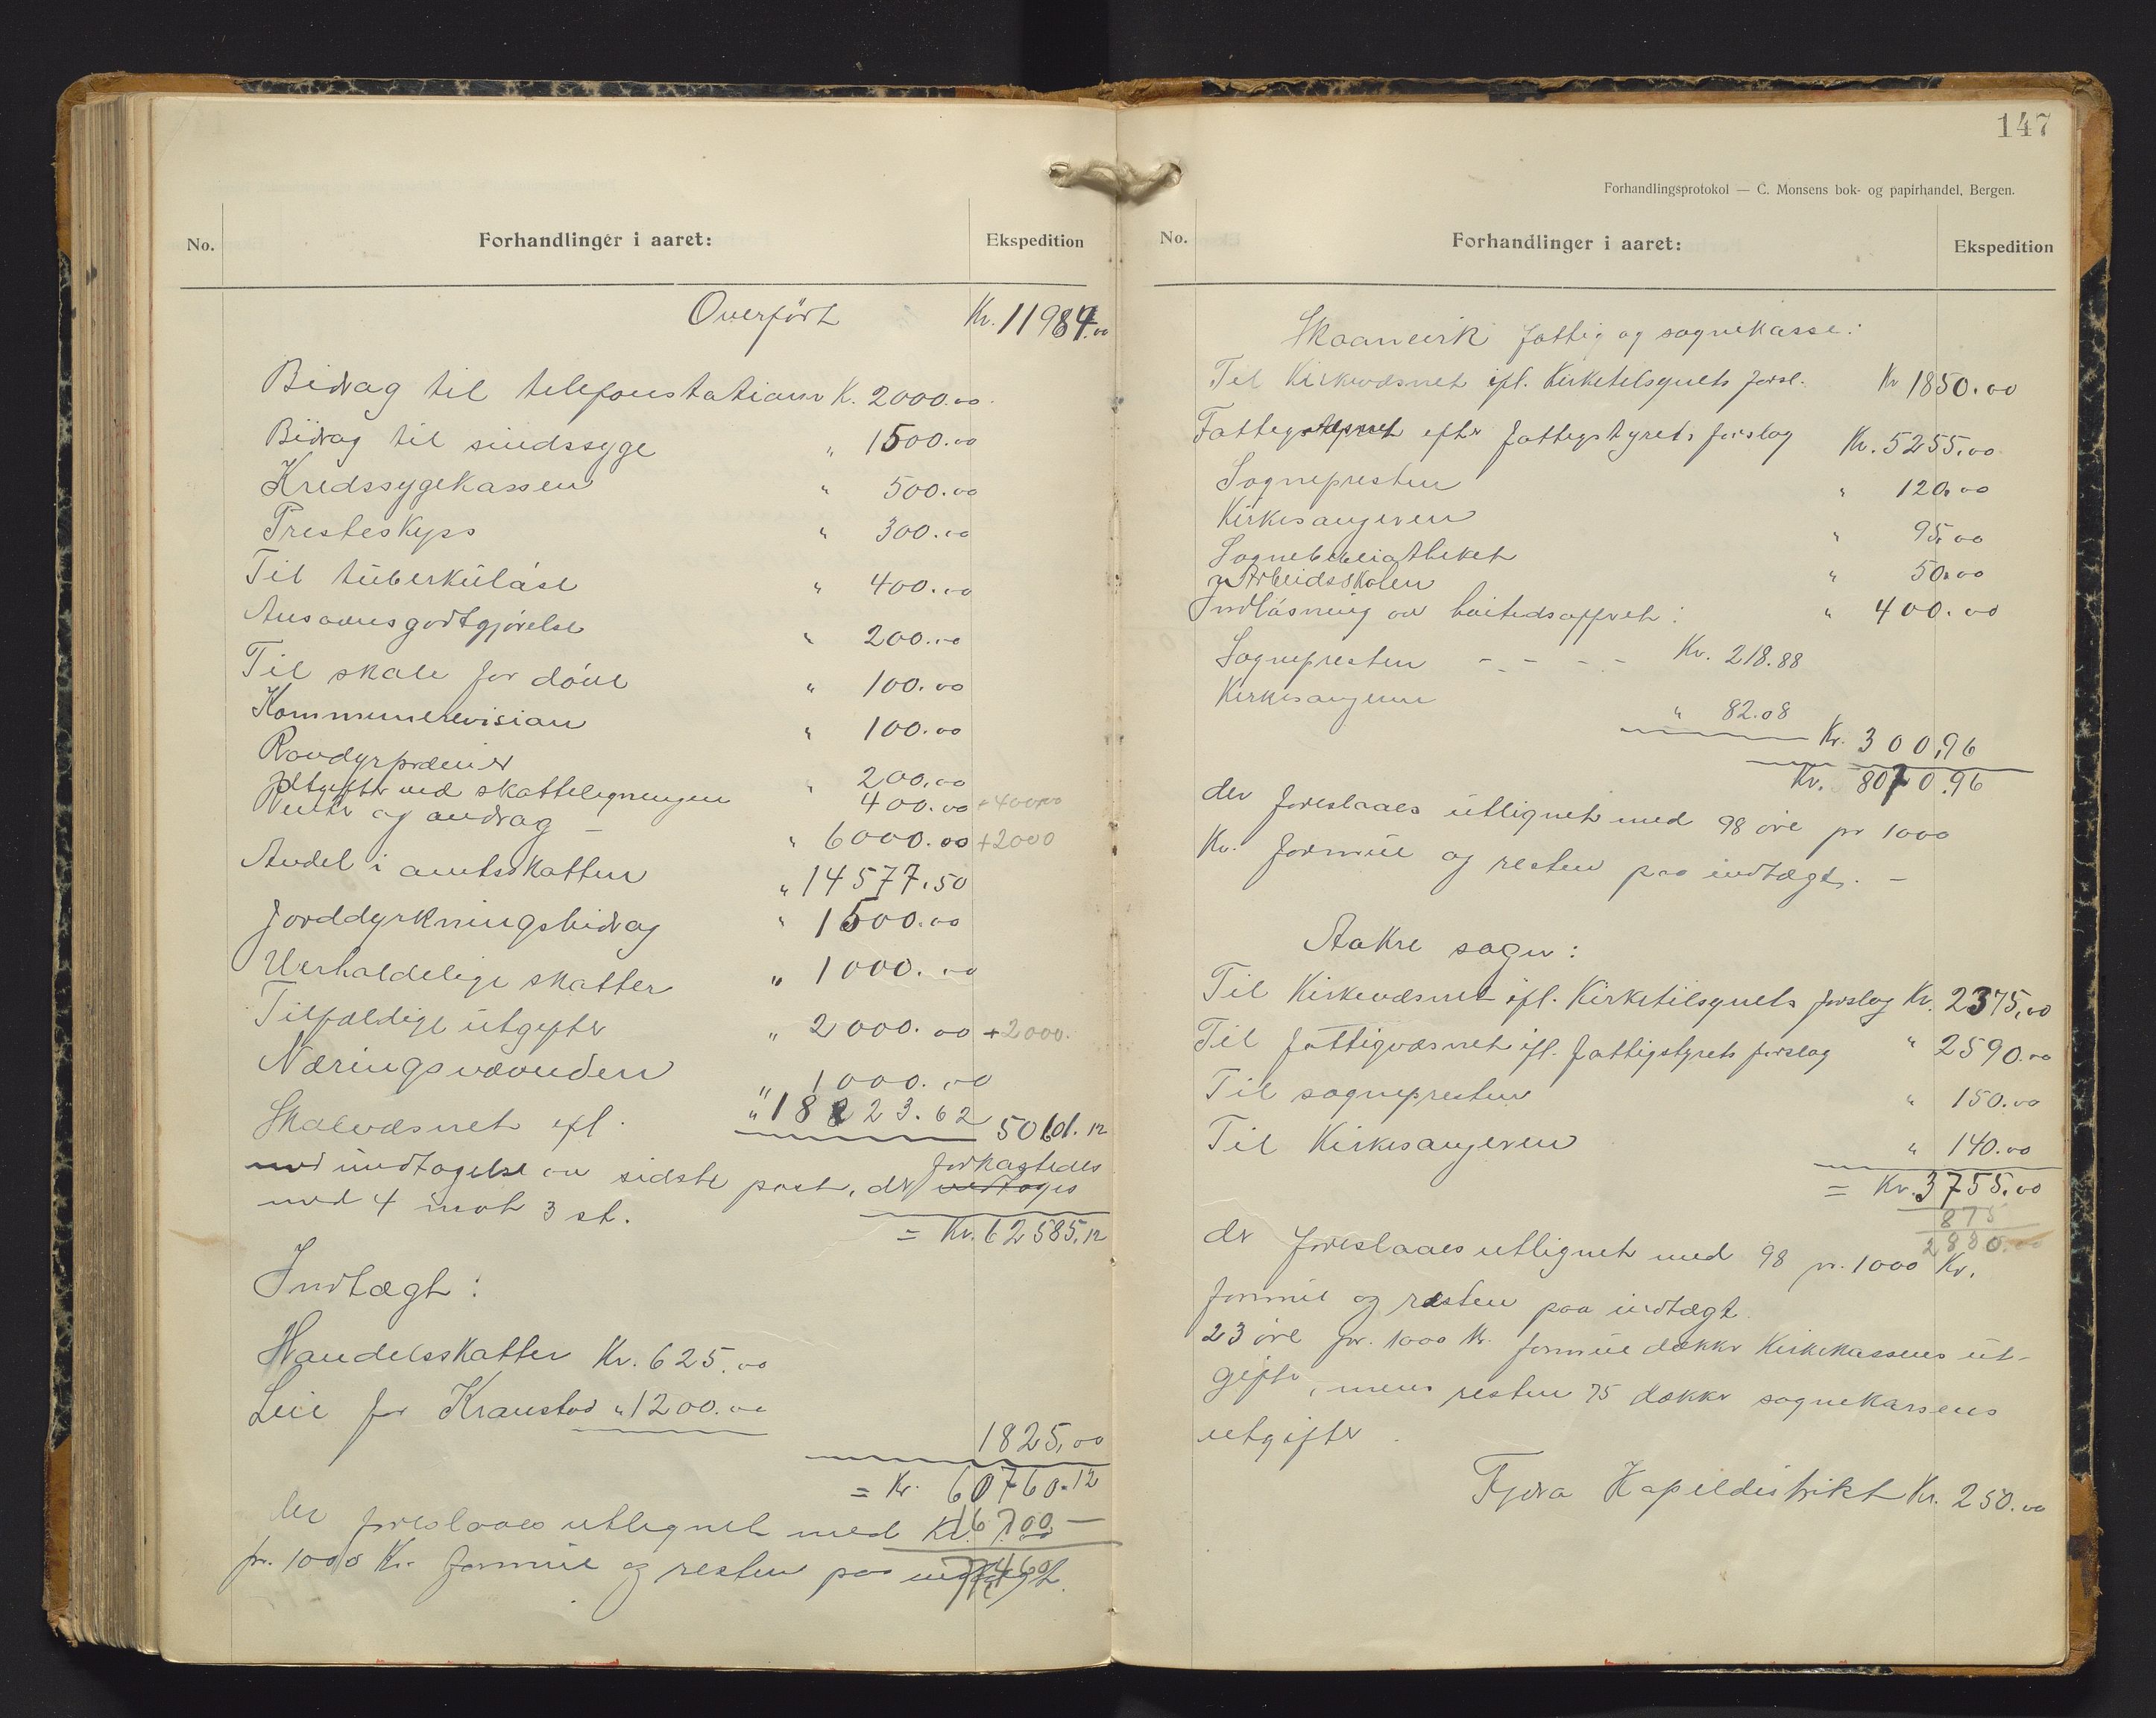 No.
Forhandlinger i aaret:
Ekspedition
Overført Kr. 11984.00
Bidrag til telefonstationer K. 2000.00
Bidrag til sindssyge " 1500.00
Kredssygekassen " 500.00
Presteskyss " 300.00
Til tuberkuløse " 400.00
Ansvarsgodtgjørelse " 200.00
Til skole for døve " 100.00
Kommunerevision " 100.00
Rovdyrpræmier " 200.00
Utgifter ved skatteligningen 400.00 +400.00
Renter og avdrag " 6000.00 +2000
Andel i amtsskatten " 14577.50
Jorddyrkningsbidrag " 1500.00
Uerholdelige skatter " 1000.00
Tilfældige utgifter " 2000.00 +2000.
Næringsnævnden " 1000.00
Skolevæsnet efl. " 18823.62 50601.12
med undtagelse av sidste post, der vedtoges forkastedes
med 4 mot 3 st.
= Kr. 62585.12
Indtægt:
Handelsskatter Kr. 625.00
Leie for Kranstad " 1200.00
1825.00
= Kr. 60760.12
der foreslaaes utlignet med Kr.
pr. 1000 Kr. formue og resten paa indtægt.
147
Forhandlingsprotokol — C. Monsens bok- og papirhandel, Bergen.
No.
Forhandlinger i aaret:
Ekspedition
Skaanevik fattig og sognekasse:
Til Kirkevæsnet ifl. Kirketilsynets forsl. Kr 1850.00
efter fattigstyrets forslag Kr. 5255.00
Sognepresten " 120.00
Kirkesangeren " 95.00
Sognebibliotheket " 50.00
Arbeidsskolen " 400.00
Indløsning av høitidsoffret:
Sognepresten - - - - Kr. 218.88
Kirkesangeren " 82.08
Kr. 300.96
Kr. 8070.96
der foreslaaes utlignet med 98 øre pr 1000
Kr. formue og resten paa indtægt. -
Aakre sogn:
Til Kirkevæsnet ifl. Kirketilsynets forslag Kr. 2375.00
Til fattigvæsnet ifl. fattigstyrets forslag " 2590.00
Til sognepresten " 150.00
Til Kirkesangeren " 140.00
= Kr. 3755.00
875
2880.00
der foreslaaes utlignet med 98 pr. 1000 Kr.
formue og resten paa indtægt
23 øre pr. 1000 Kr. formue dækker Kirkekassens ut-
gifter, mens resten 75 dækker sognekassens
utgifter.
Fjæra Kapeldistrikt Kr. 250.00